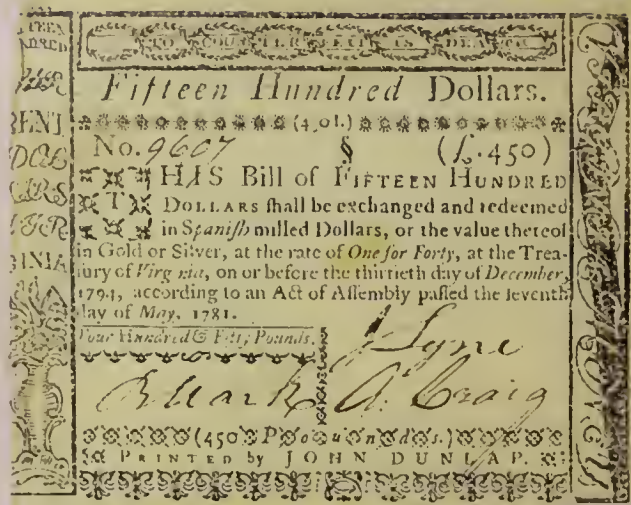 TO COUNTERFEIT IS DEATH.
Fifteen Hundred Dollars.
(450l.)
No. 9607 § (£.450)
THIS Bill of FIFTEEN HUNDRED
DOLLARS ſhall be exchanged and redeemed
in Spaniſh milled Dollars, or the value thereof
in Gold or Silver, at the rate of One for Forty, at the Trea-
ſury of Virginia, on or before the thirtieth day of December,
1794, according to an Act of Aſſembly paſſed the ſeventh
day of May, 1781.
Four Hundred & Fifty Pounds.
J Lyne
B Stark A. Craig
(450 Pounds.)
PRINTED by JOHN DUNLAP.